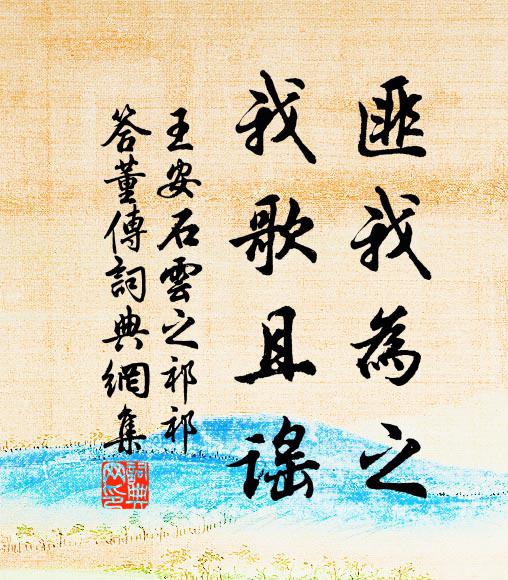 匪我為之
我歌且謠
王安石雲之祁祁
答董傳詞典網集